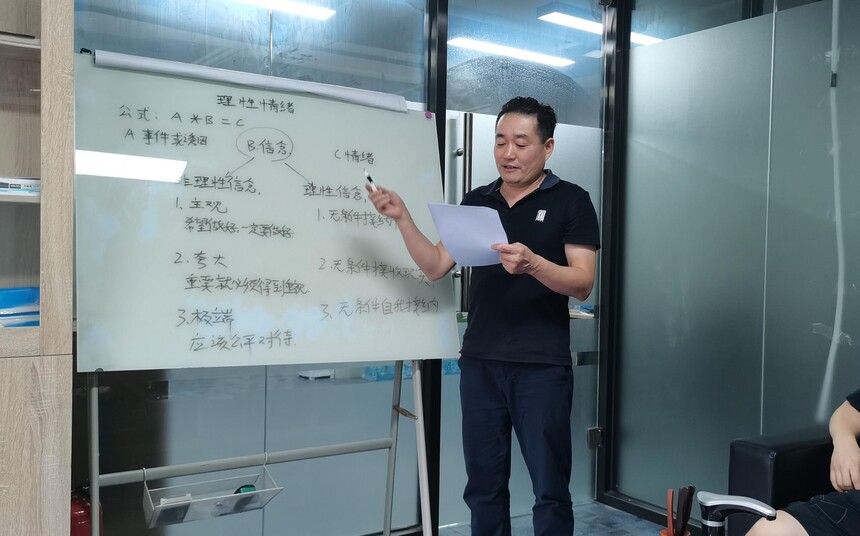 理性情绪
公式: A*B=C
A 事件或诱因
B.信念
C情绪
非理性信念,
1. 主观
希望做好,一定要做好
2. 夸大
重要就必须得到重视
3. 极端
应该公平对待.
理性信念,
1. 无条件接纳
2. 无条件接收
3. 无条件自我接纳